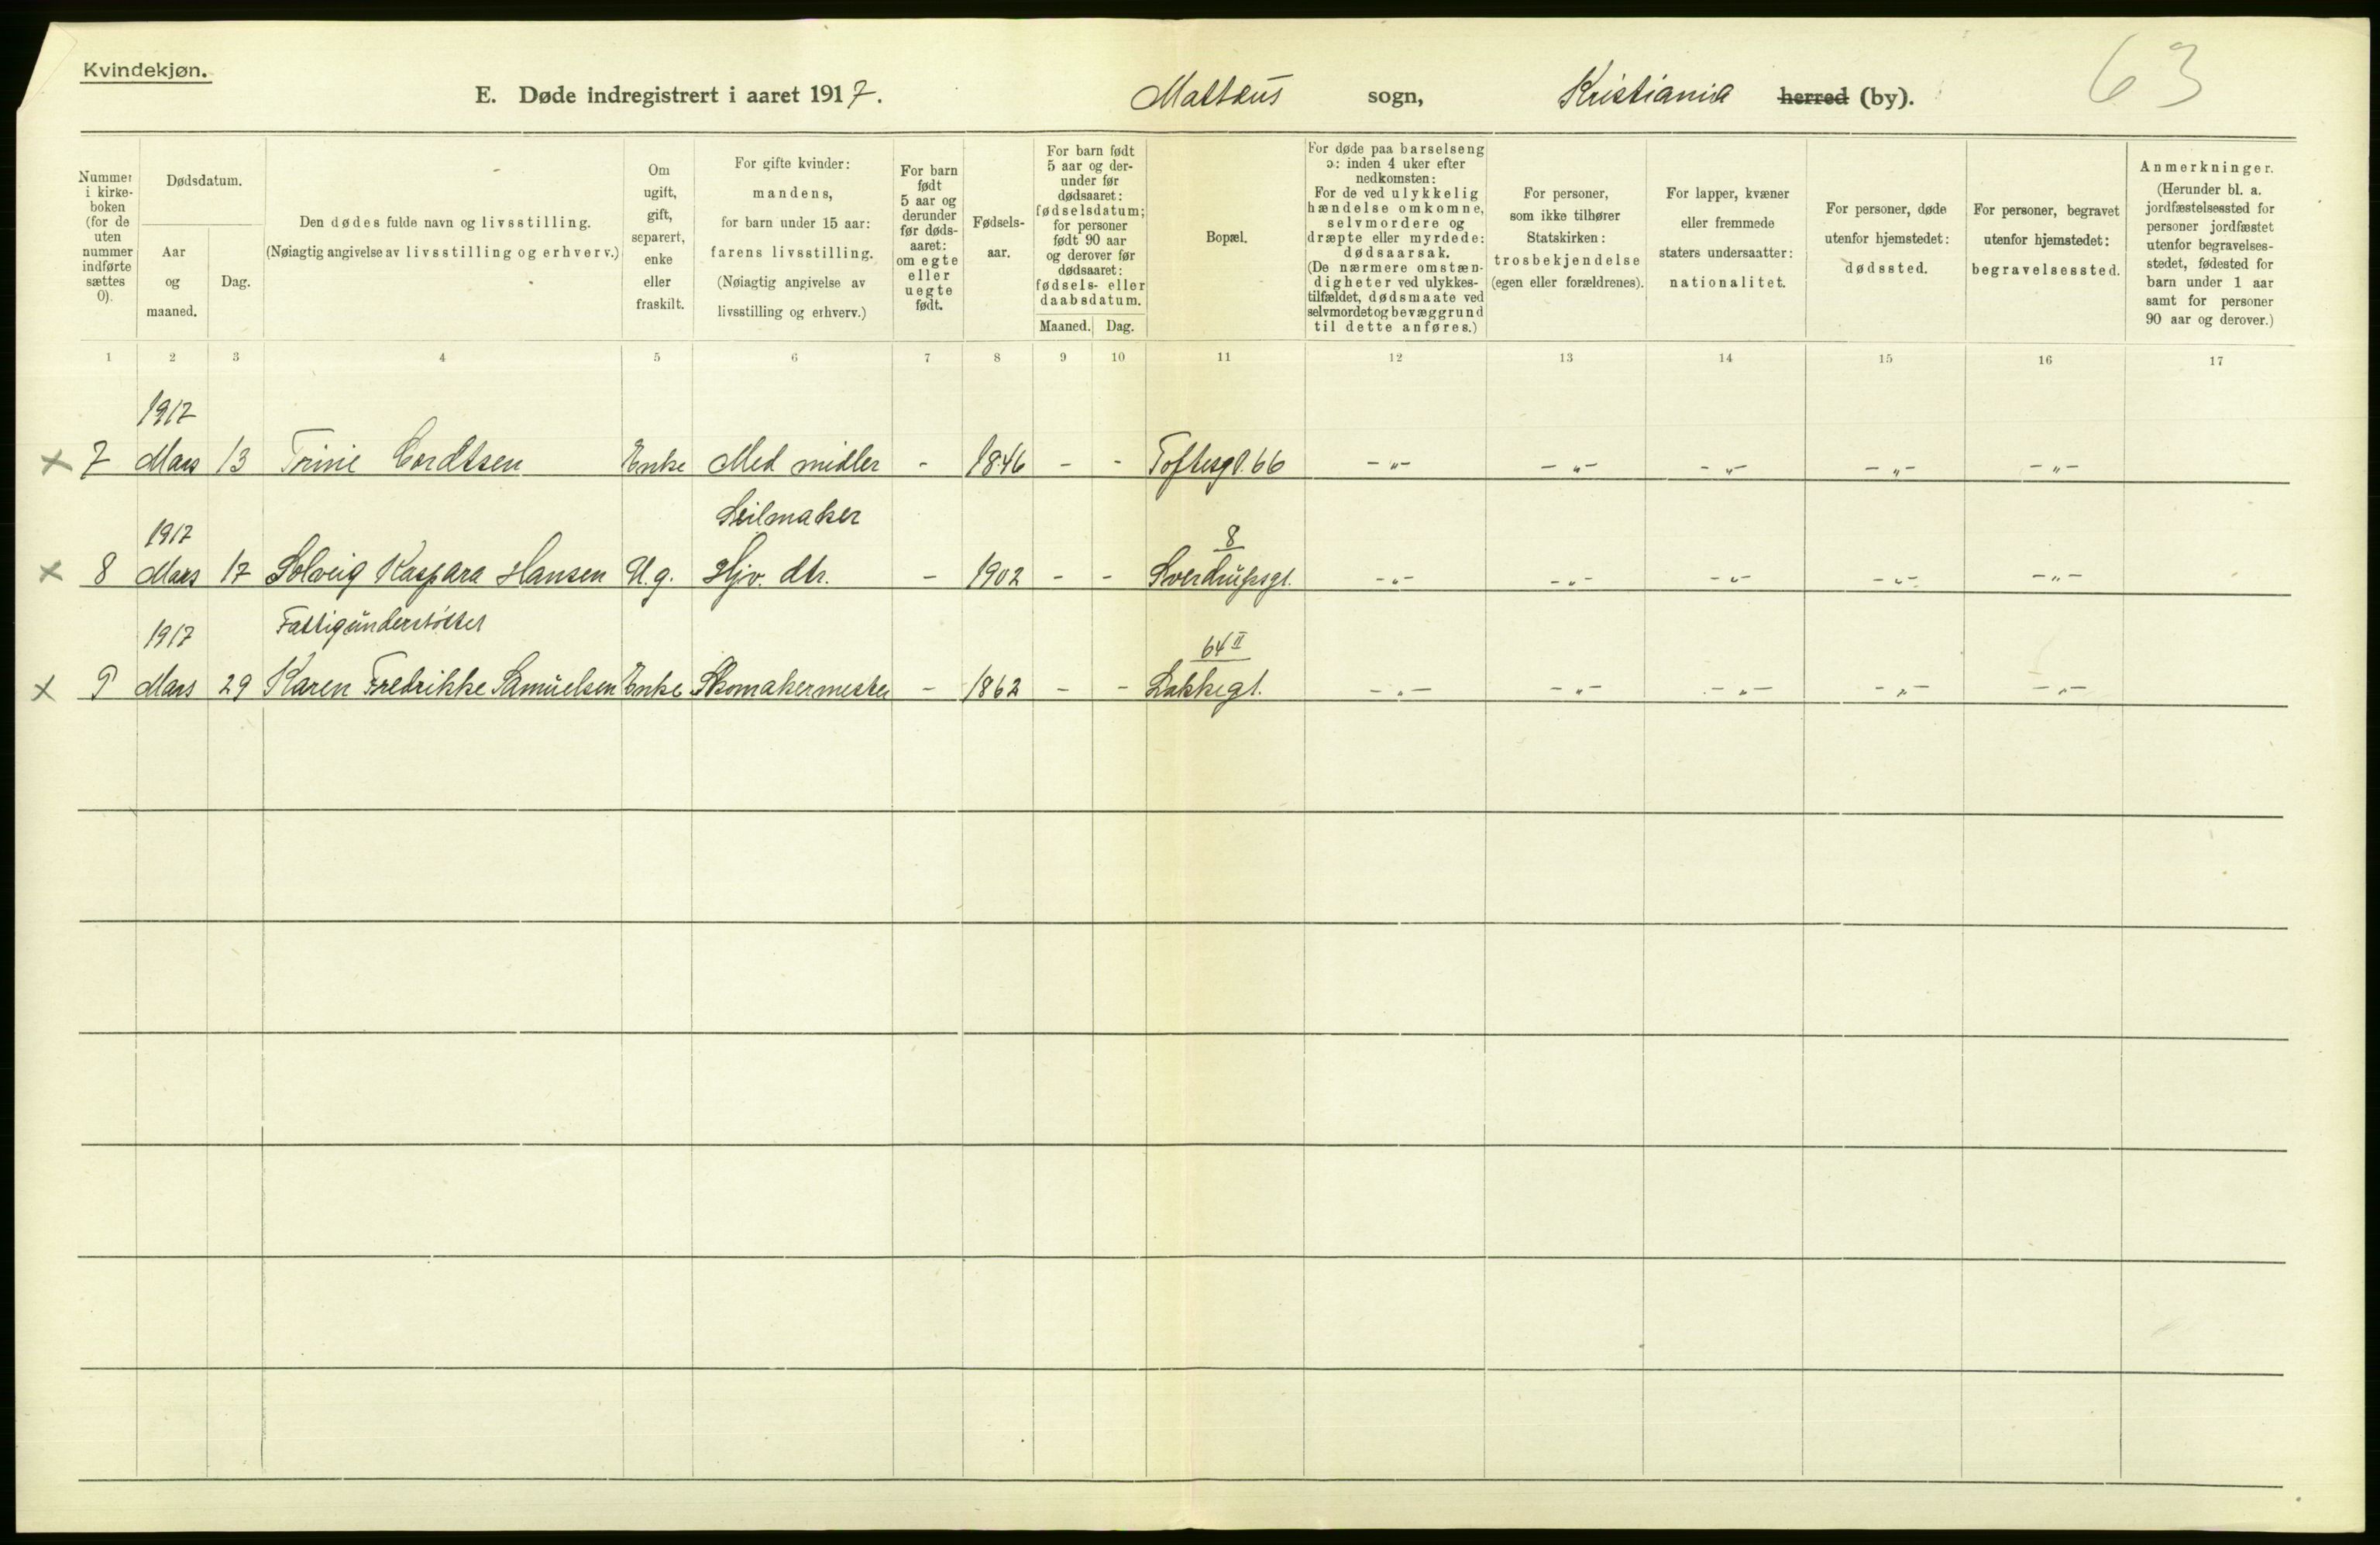 Kvindekjøn.
63
E. Døde indregistrert i aaret 1917. Mattæus sogn, Kristiania herred (by).
Nummer i kirkeboken (for de uten nummer indførte sættes 0).
Dødsdatum.
Aar og maaned.
Dag.
Den dødes fulde navn og livsstilling.
(Nøiagtig angivelse av livsstilling og erhverv.)
Om ugift, gift, separert, enke eller fraskilt.
For gifte kvinder: mandens, for barn under 15 aar: farens livsstilling.
(Nøiagtig angivelse av livsstilling og erhverv.)
For barn født 5 aar og derunder før dødsaaret: om egte eller uegte født.
Fødselsaar.
For barn født 5 aar og derunder før dødsaaret: fødselsdatum; for personer født 90 aar og derover før dødsaaret: fødsels- eller daabsdatum.
Maaned. Dag.
Bopæl.
For døde paa barselseng ɔ: inden 4 uker efter nedkomsten: For de ved ulykkelig hændelse omkomne, selvmordere og dræpte eller myrdede: dødsaarsak. (De nærmere omstændigheter ved ulykkestilfældet, dødsmaate ved selvmordet og bevæggrund til dette anføres.)
For personer, som ikke tilhører Statskirken: trosbekjendelse (egen eller forældrenes).
For lapper, kvæner eller fremmede staters undersaatter: nationalitet.
For personer, døde utenfor hjemstedet: dødssted.
For personer, begravet utenfor hjemstedet: begravelsessted.
Anmerkninger.
(Herunder bl. a. jordfæstelsessted for personer jordfæstet utenfor begravelsesstedet, fødested for barn under 1 aar samt for personer 90 aar og derover.)
1 2 3 4 5 6 7 8 9 10 11 12 13 14 15 16 17
1917
x 7 Mars 13 Trine Cordtsen Enke Med midler - 1846 - - Toftesgt. 66 -"- -"- -"- -"- -"-
Seilmaker
1917 8
x 8 Mars 17 Solveig Kaspara Hansen U.g. Hjv. dtr. - 1902 - - Sverdrupsgt. -"- -"- -"- -"- -"-
Fattigunderstøttet
1917 64 II
x 9 Mars 29 Karen Fredrikke Samuelsen Enke Skomakermester - 1862 - - Lakkegt. -"- -"- -"- -"- -"-